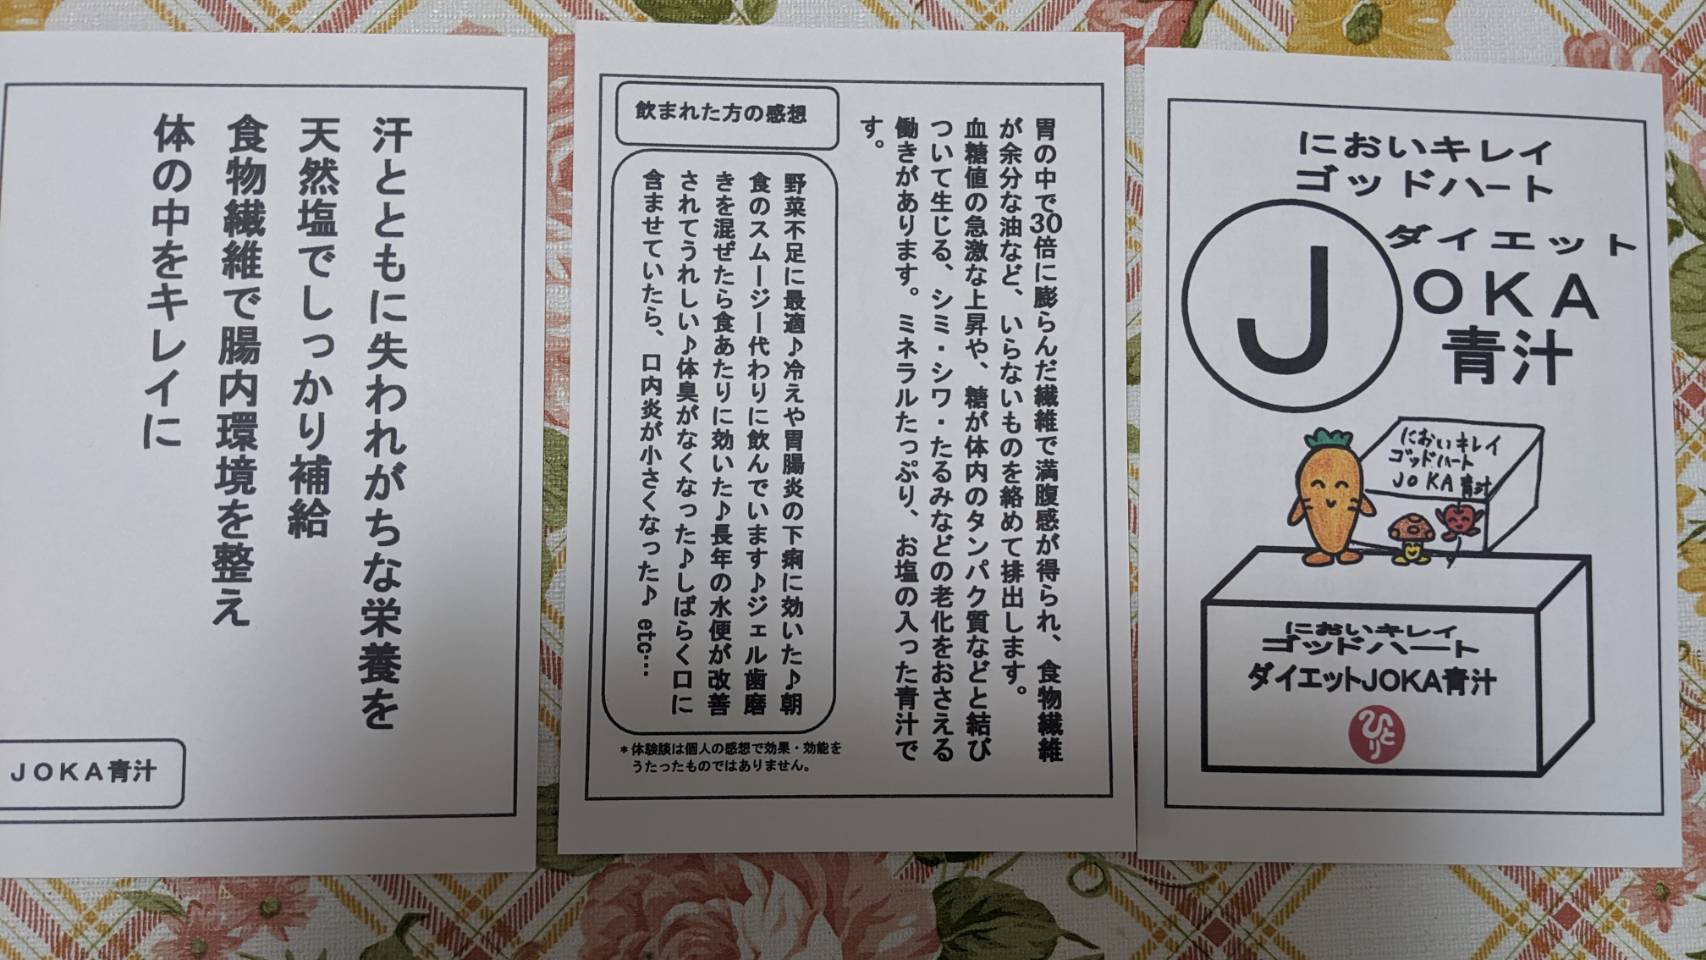 汗とともに失われがちな栄養を
天然塩でしっかり補給
食物繊維で腸内環境を整え
体の中をキレイに
JOKA青汁
胃の中で30倍に膨らんだ繊維で満腹感が得られ、食物繊維
が余分な油など、いらないものを絡めて排出します。
血糖値の急激な上昇や、糖が体内のタンパク質などと結び
ついて生じる、シミ・シワ・たるみなどの老化をおさえる
働きがあります。ミネラルたっぷり、お塩の入った青汁で
す。
飲まれた方の感想
野菜不足に最適♪冷えや胃腸炎の下痢に効いた♪朝
食のスムージー代わりに飲んでいます♪ジェル歯磨
きを混ぜたら食あたりに効いた♪長年の水便が改善
されてうれしい♪体臭がなくなった♪しばらく口に
含ませていたら、口内炎が小さくなった♪ etc…
＊体験談は個人の感想で効果・効能を
うたったものではありません。
においキレイ
ゴッドハート
ダイエット
JOKA
青汁
においキレイ
ゴッドハート
JOKA青汁
においキレイ
ゴッドハート
ダイエットJOKA青汁
ひとり